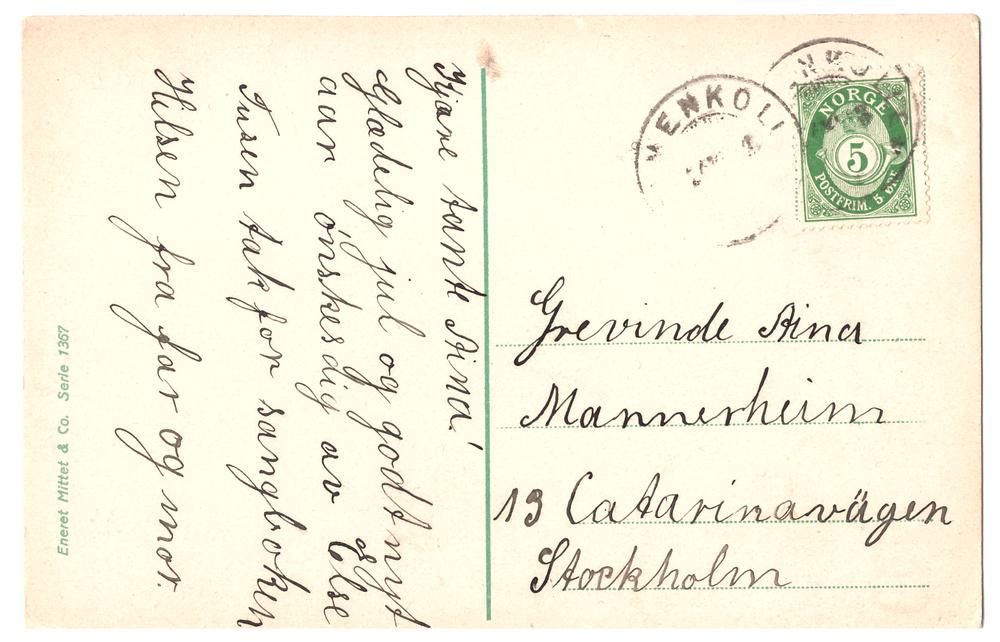 Kjære tante Aina!
Glædelig jul og godt nyt
aar ønskes dig av Else
Tusen tak for sangboken
Hilsen fra far og mor.
Grevinde Aina
Mannerheim
13 Catarinavägen
Stockholm
NORGE
5
POSTFRIM. 5 ØRE
Eneret Mittet & Co. Serie 1367